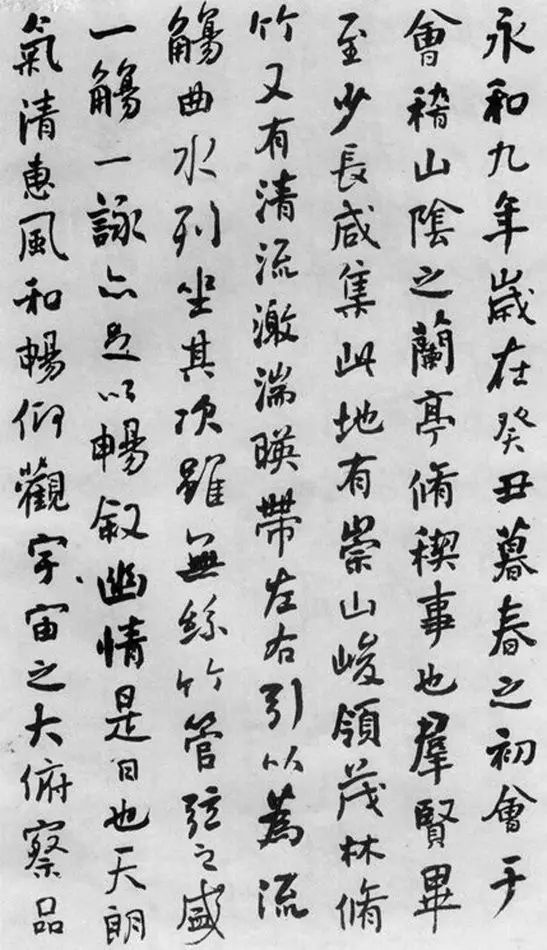 永和九年歲在癸丑暮春之初會于
會稽山陰之蘭亭脩稧事也羣賢畢
至少長咸集此地有崇山峻領茂林脩
竹又有清流激湍暎帶左右引以為流
觴曲水列坐其次雖無絲竹管弦之盛
一觴一詠亦足以暢叙幽情是日也天朗
氣清惠風和暢仰觀宇宙之大俯察品